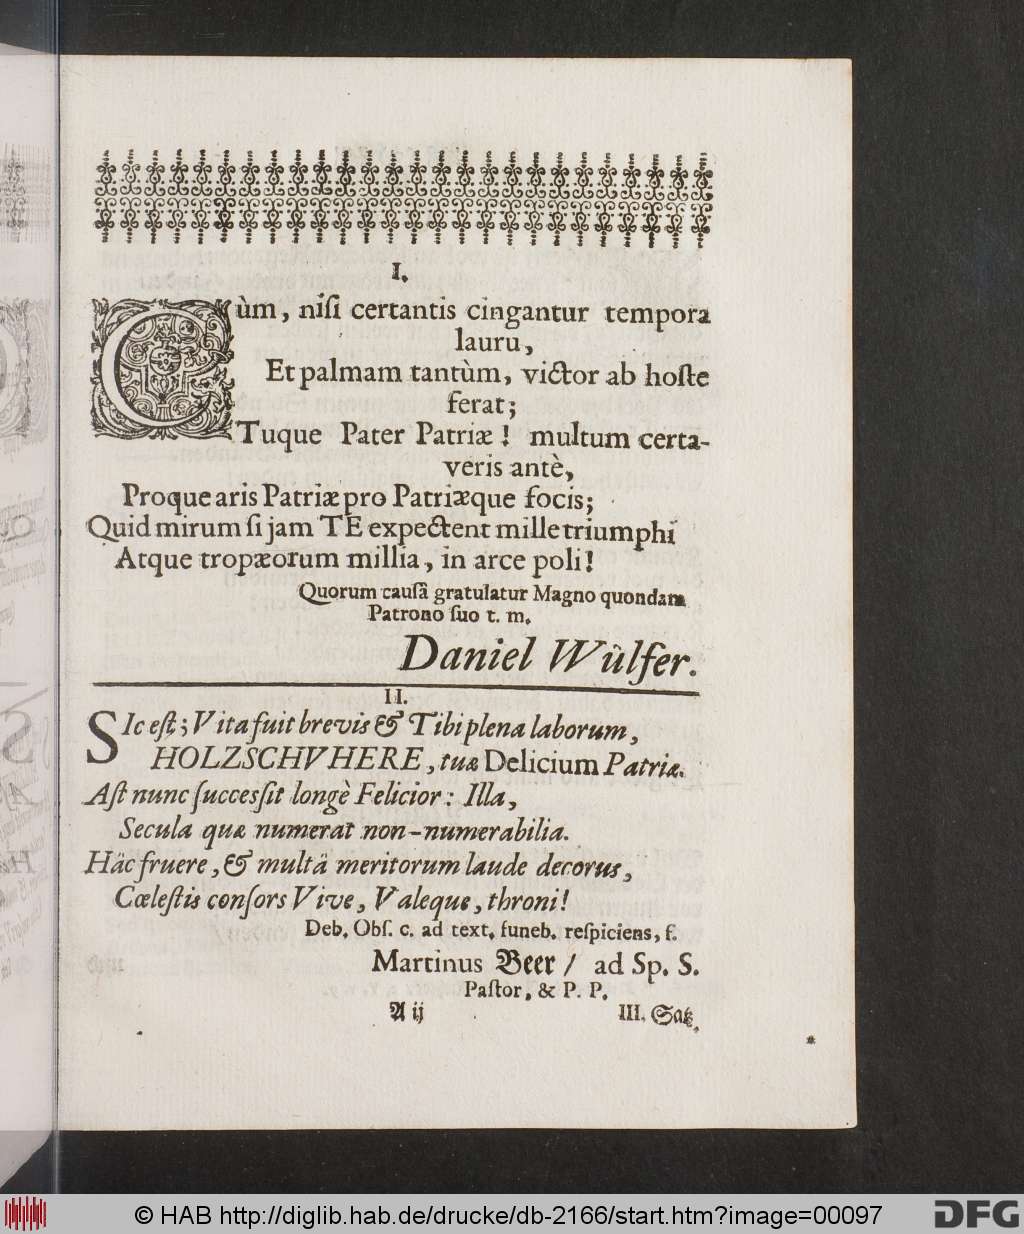 I.
Cùm, niſi certantis cingantur tempora
lauru,
Et palmam tantùm, victor ab hoſte
ferat;
Tuque Pater Patriæ! multum certa-
veris antè,
Proque aris Patriæ pro Patriæque focis;
Quid mirum ſi jam TE expectent mille triumphi
Atque tropæorum millia, in arce poli!
Quorum cauſâ gratulatur Magno quondam
Patrono ſuo t. m.
Daniel Wülfer.
II.
SIc eſt; Vita fuit brevis & Tibi plena laborum,
HOLZSCHVHERE, tuæ Delicium Patriæ.
Aſt nunc ſucceſſit longè Felicior: Illa,
Secula quæ numerat non-numerabilia.
Hâc fruere, & multâ meritorum laude decorus,
Cœleſtis conſors Vive, Valeque, throni!
Deb. Obſ. c. ad text. funeb. reſpiciens, f.
Martinus Beer / ad Sp. S.
Paſtor, & P. P.
A ij
III. Satz.
© HAB http://diglib.hab.de/drucke/db-2166/start.htm?image=00097
DFG